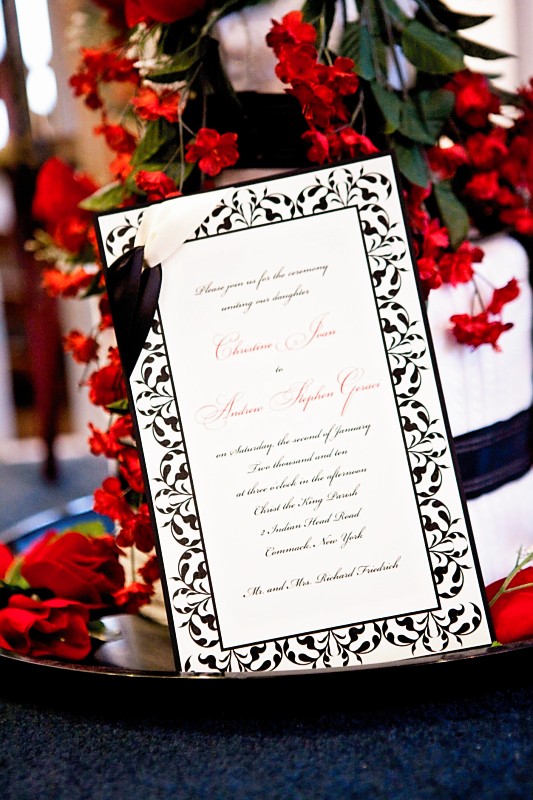 Please join us for the ceremony
uniting our daughter
Christine Joan
to
Andrew Stephen Geraci
on Saturday, the second of January
Two thousand and ten
at three o'clock in the afternoon
Christ the King Parish
2 Indian Head Road
Commack, New York
Mr. and Mrs. Richard Friedrich